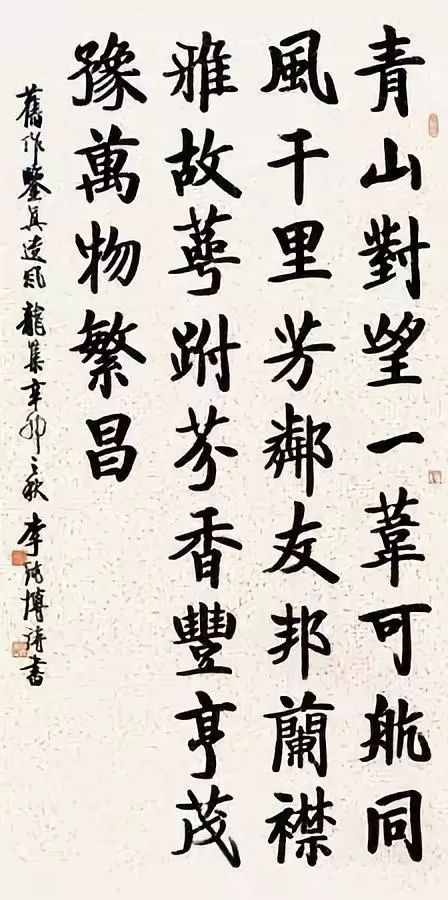 青山對望一葦可航同
風千里芳鄰友邦蘭襟
雅故萼跗芬香豐亨茂
豫萬物繁昌
舊作鑒真風龍集辛卯之秋李博書